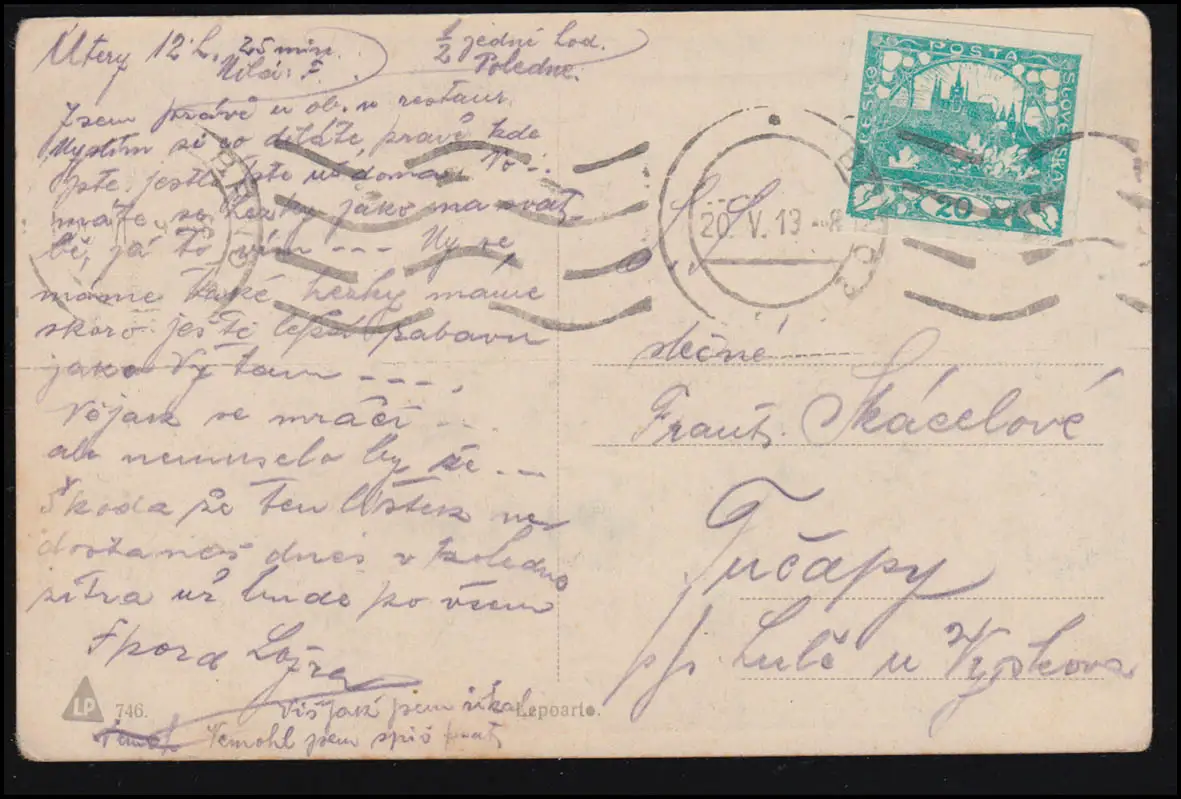 Útery 12 h. 25 min.
½ jedné hod.
Poledne.
Milá: F.
Jsem právě u ob. v restaur.
Myslím si co děláte, pravě kde
jste. jestli jste už doma. To
máte se hezky jako na svat-
bě, já to vím --- My se
máme také hezky máme
skoro ještě lepší zabavu
jako Vy tam ----.
Vojak se mračí ...
ale nemuselo by še --
Škoda že ten lístek ne
dostaneš dnes v poledne
zítra už bude po všem
Lojza
Víš jak jsem řikal
Nemohl jsem spiš psat
LP
746.
Lepoarto.
POŠTA
ČESKO
SLOVENSKÁ
20
20. V. 19 - 8
slečně
Frant. Skácelové
Tučapy
p/p. Lulč u Vyškova